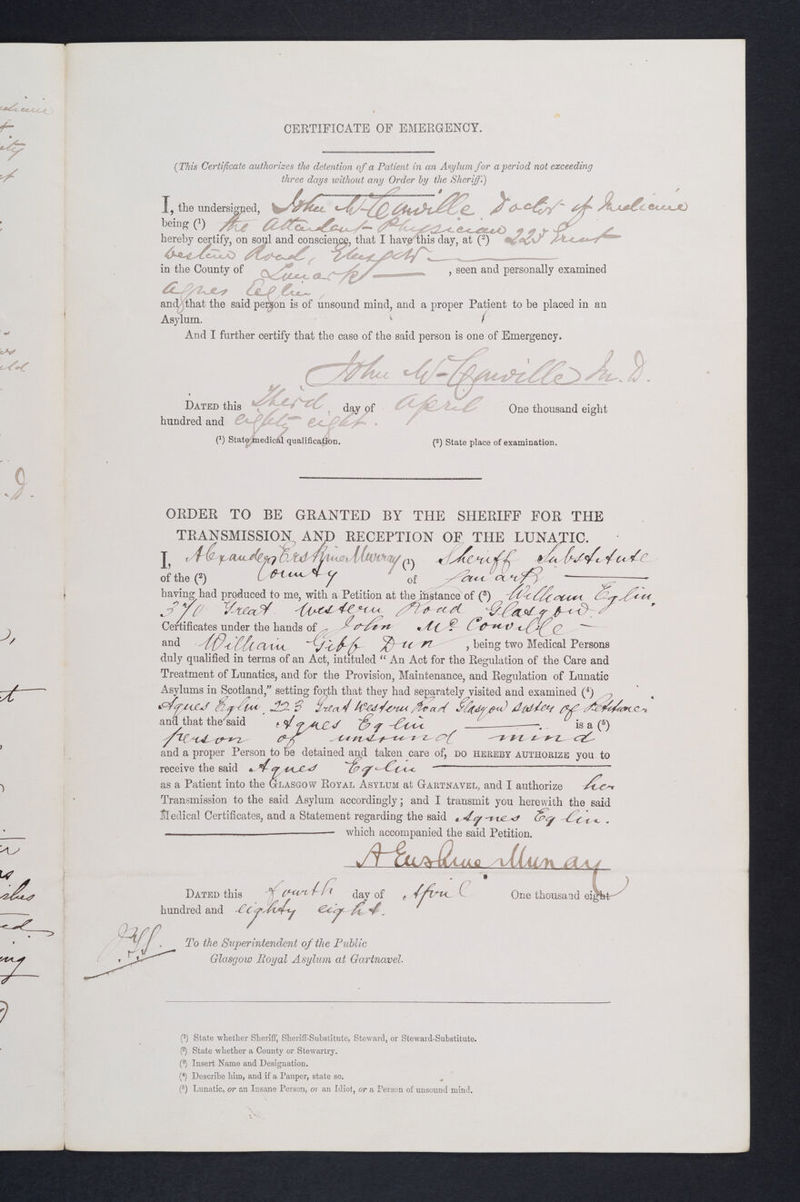 CERTIFICATE OF EMERGENCY.
(This Certificate authorizes the detention of a Patient in an Asylum for a period not exceeding
three days without any Order by the Sheriff.)
I, the undersigned, John McConville Doctor of Medicine
being (¹) the Attendant Physician
hereby certify, on soul and conscience, that I have this day, at (²) 223 Great
Western Road, Glasgow
in the County of Lanark , seen and personally examined
Agnes Eglin
and that the said person is of unsound mind, and a proper Patient to be placed in an
Asylum.
And I further certify that the case of the said person is one of Emergency.
John McConville M.D.
DATED this Third day of April One thousand eight
hundred and eighty eight.
(¹) State medical qualification. (²) State place of examination.
ORDER TO BE GRANTED BY THE SHERIFF FOR THE
TRANSMISSION AND RECEPTION OF THE LUNATIC.
I, Alexander Erskine Murray (¹) Sheriff Substitute
of the (²) County of Lanark
having had produced to me, with a Petition at the instance of (³) William Eglin
Great Western Road Glasgow
Certificates under the hands of John McConville
and William Gibb Dun , being two Medical Persons
duly qualified in terms of an Act, intituled “An Act for the Regulation of the Care and
Treatment of Lunatics, and for the Provision, Maintenance, and Regulation of Lunatic
Asylums in Scotland,” setting forth that they had separately visited and examined (⁴)
Agnes Eglin 223 Great Western Road Glasgow sister of Petitioner
and that the said Agnes Eglin is a (⁵)
person of unsound mind
and a proper Person to be detained and taken care of, DO HEREBY AUTHORIZE you to
receive the said Agnes Eglin
as a Patient into the GLASGOW ROYAL ASYLUM at GARTNAVEL, and I authorize her
Transmission to the said Asylum accordingly; and I transmit you herewith the said
Medical Certificates, and a Statement regarding the said Agnes Eglin.
which accompanied the said Petition.
A Erskine Murray
DATED this Fourth day of April One thousand eight
hundred and eighty eight.
To the Superintendent of the Public
Glasgow Royal Asylum at Gartnavel.
(¹) State whether Sheriff, Sheriff-Substitute, Steward, or Steward-Substitute.
(²) State whether a County or Stewartry.
(³) Insert Name and Designation.
(⁴) Describe him, and if a Pauper, state so.
(⁵) Lunatic, or an Insane Person, or an Idiot, or a Person of unsound mind.